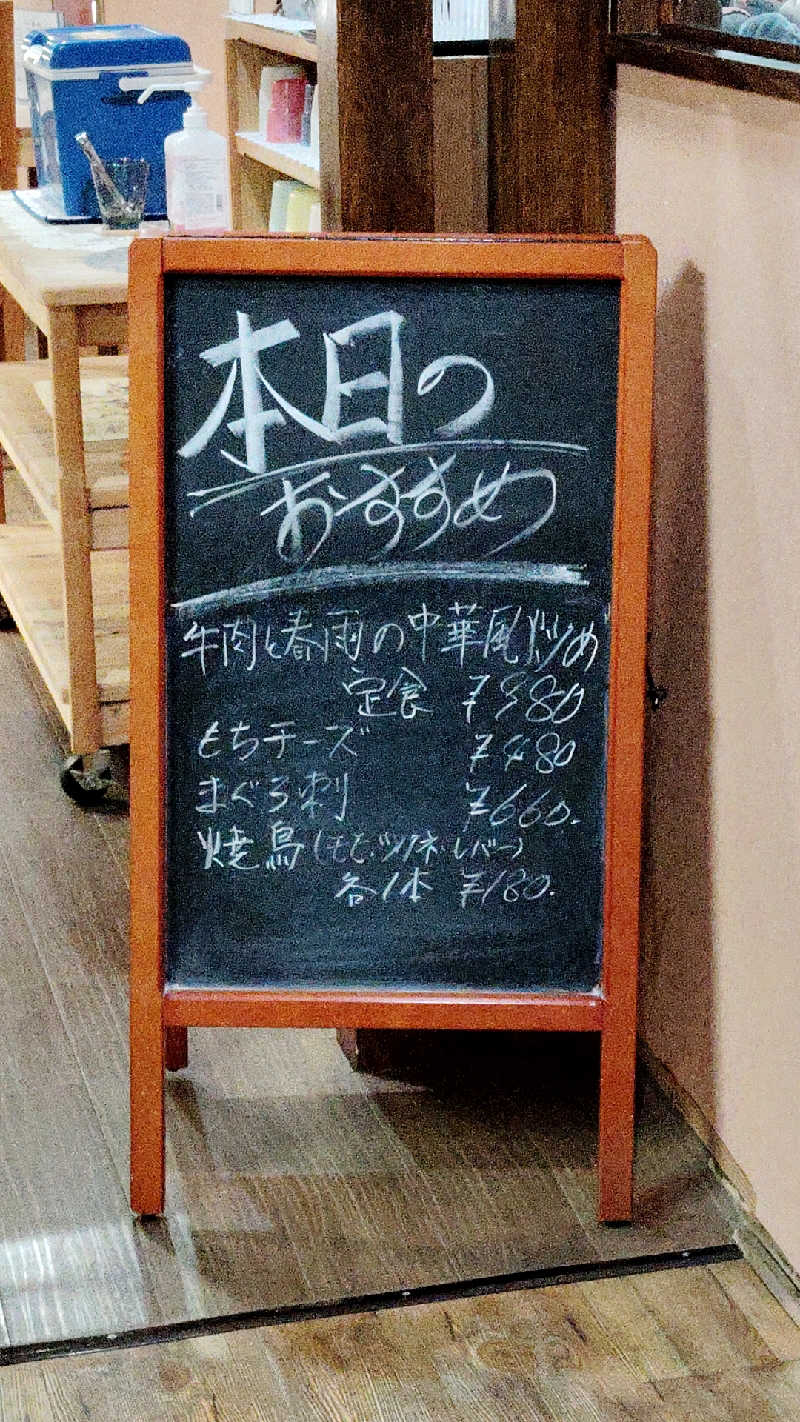 本日の
おすすめ
牛肉と春雨の中華風炒め
定食 ¥980
もちチーズ ¥480
まぐろ刺 ¥660.
焼鳥(もも・ツクネ・レバー)
各1本 ¥180.